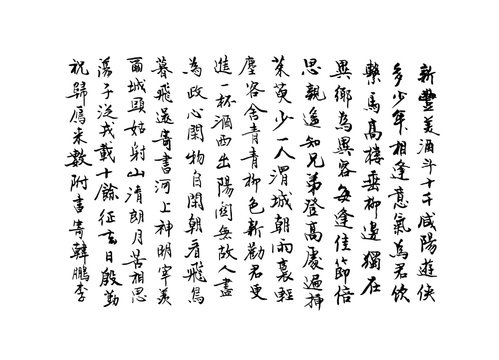 新豐美酒斗十千咸陽遊俠
多少年相逢意氣為君飲
繫馬高樓垂柳邊獨在
異鄉為異客每逢佳節倍
思親遙知兄弟登高處遍插
茱萸少一人渭城朝雨裛輕
塵客舍青青柳色新勸君更
進一杯酒西出陽関無故人盡
為政心閑物自閑朝看飛鳥
暮飛還寄書河上神明宰羨
爾城頭姑射山清朗月苦相思
蕩子從戎載十餘征去日殷勤
祝歸鴈来數附書寄韓鵬李